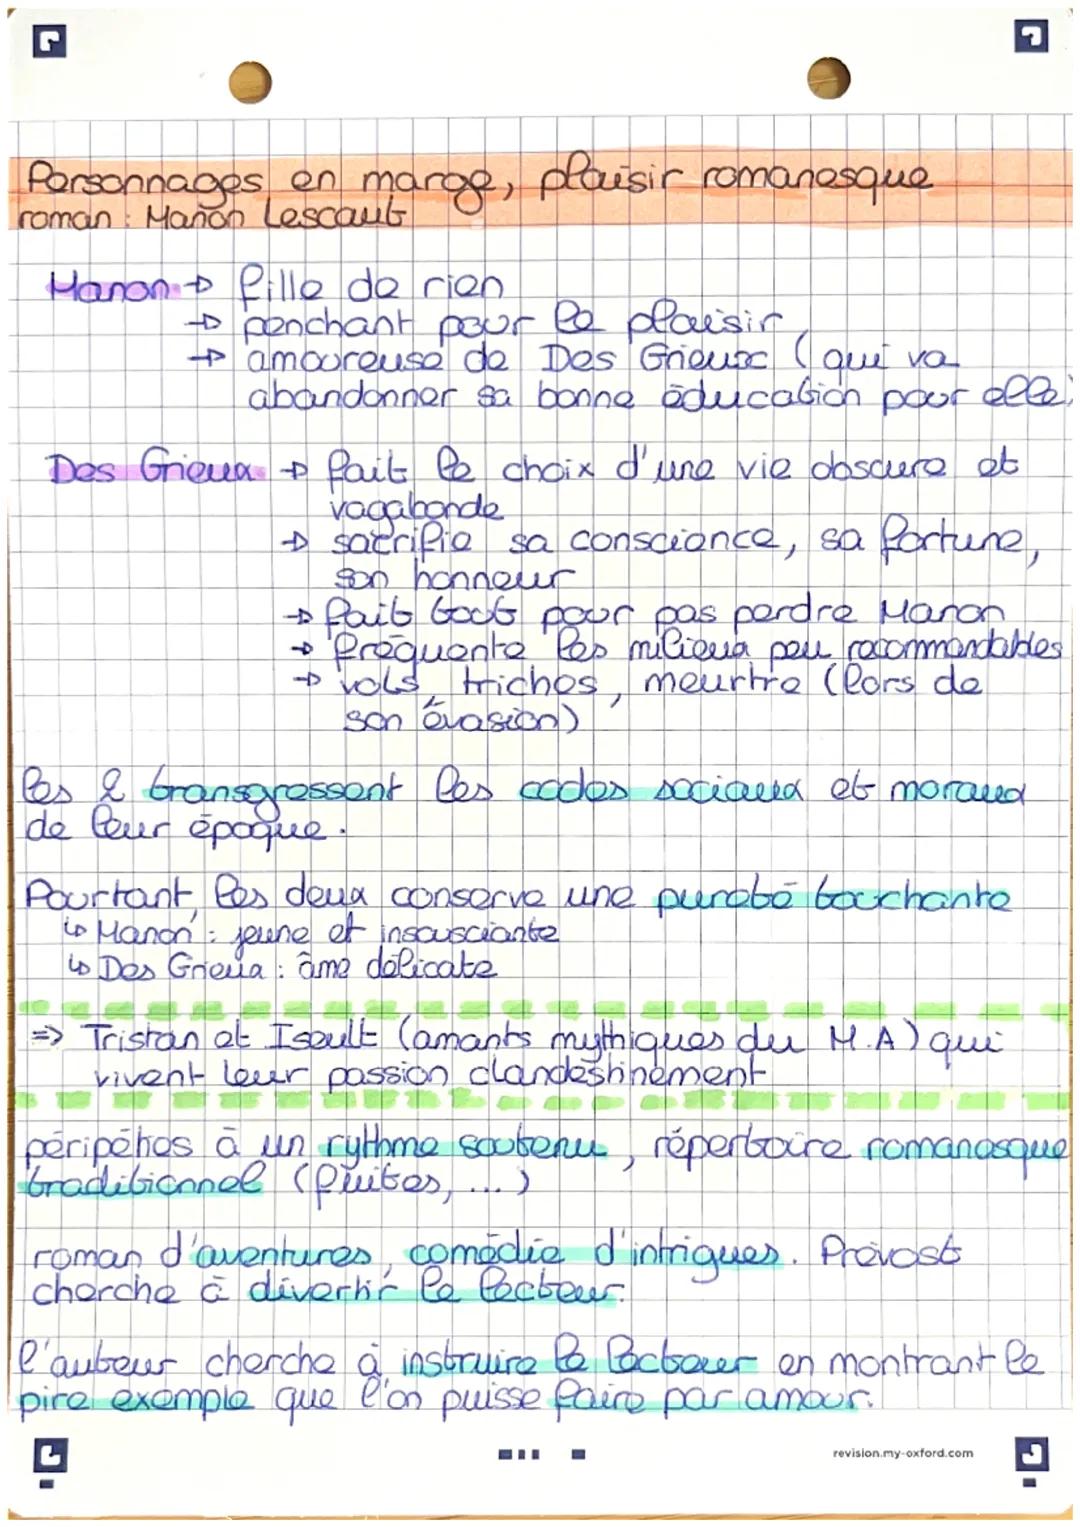 Personnages en marge, plaisir romanesque
roman : Manon Lescaut
Manon → fille de rien
→ penchant pour le plaisir
→ amoureuse de Des Grieux (qui va
abandonner sa bonne éducation pour elle)
Des Grieux → fait le choix d'une vie obscure et
vagabonde
→ sacrifie sa conscience, sa fortune,
son honneur
→ fait tout pour pas perdre Manon
→ fréquente les milieux peu recommandables
→ vols, triches, meurtre (lors de
son évasion)
les 2 transgressent les codes sociaux et moraux
de leur époque.
Pourtant, les deux conserve une pureté touchante
↳ Manon : jeune et insousciante
↳ Des Grieux : âme délicate
=> Tristan et Iseult (amants mythiques du M.A) qui
vivent leur passion clandestinement
péripéties à un rythme soutenu, répertoire romanesque
traditionnel (fuites, ...)
roman d'aventures, comédie d'intrigues. Prévost
cherche à divertir le lecteur.
l'auteur cherche à instruire le lecteur en montrant le
pire exemple que l'on puisse faire par amour.
revision.my-oxford.com